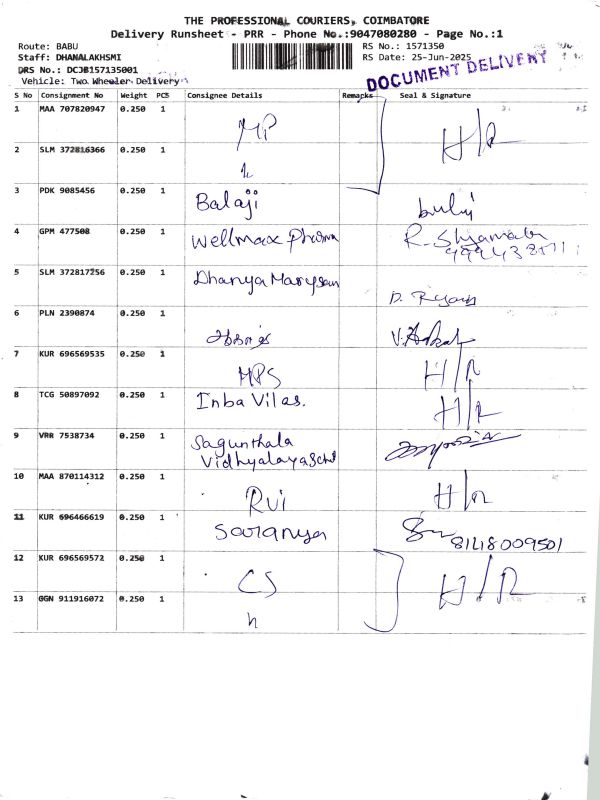 THE PROFESSIONAL COURIERS, COIMBATORE
Delivery Runsheet - PRR - Phone No.:9047080280 - Page No.:1
Route: BABU
RS No.: 1571350
Staff: DHANALAKHSMI
RS Date: 25-Jun-2025
DRS No.: DCJB157135001
Vehicle: Two Wheeler Delivery
DOCUMENT DELIVERY
S No Consignment No Weight PCS Consignee Details Remarks Seal & Signature
1 MAA 707820947 0.250 1 MP H/R
2 SLM 372816366 0.250 1
3 PDK 9085456 0.250 1 Balaji
4 GPM 477508 0.250 1 Wellmax Pharma
5 SLM 372817256 0.250 1 Dhanya
6 PLN 2390874 0.250 1
7 KUR 696569535 0.250 1 MPS H/R
8 TCG 50897092 0.250 1 Inba Vilas. H/R
9 VRR 7538734 0.250 1 Sagunthala
Vidhyalaya
10 MAA 870114312 0.250 1 RVI H/R
11 KUR 696466619 0.250 1 Saranya 8148009501
12 KUR 696569572 0.250 1 CS H/R
13 GGN 911916072 0.250 1